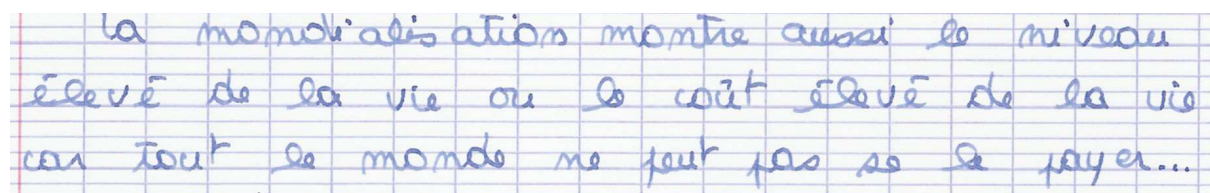 la mondialisation montre aussi le niveau
élevé de la vie ou le coût élevé de la vie
car tout le monde ne peut pas se le payer...